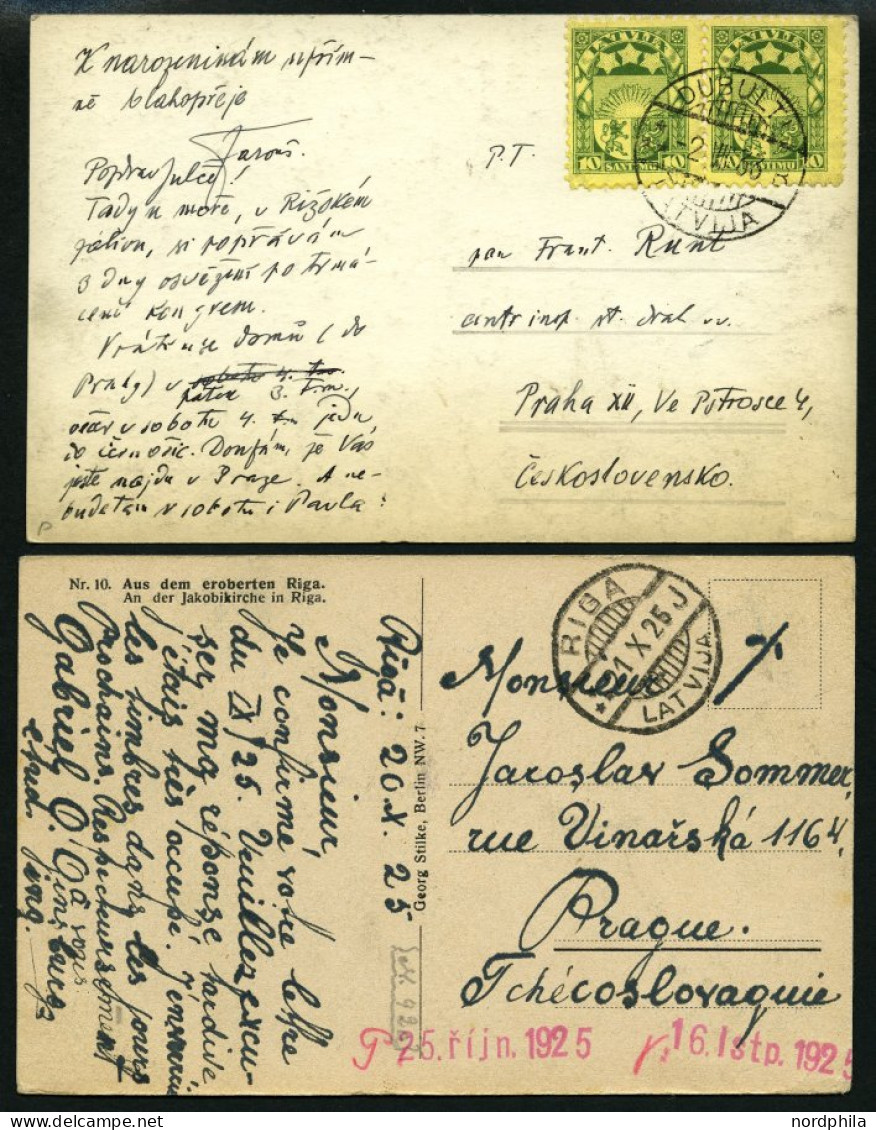 K narozeninám upřím-
ně blahopřeje
Jarouš.
Pozdrav Julče!
Tady u moře, v Rižském
zálivu, si popřávám
3 dny osvěžení po trmá-
cení kongresem.
Vrátím se domů (do
Prahy) v sobotu 4. t.m.
pátek 3. t.m.,
v sobotu 4. jedu
do Černošic. Doufám, že Vás
ještě najdu v Praze. A ne-
v sobotu i Pavla?
P
LATVIJA LATVIJA
10 SANTIMU 10 10 SANTIMU 10
DUBULTI
LATVIJA
P.T.
pan Frant. Runt
Praha XII, Ve Pštrosce 4,
Československo.
Nr. 10. Aus dem eroberten Riga.
An der Jakobikirche in Riga.
Georg Stilke, Berlin NW. 7
Rīgā: 20 X. 25
Monsieur,
Je confirme votre lettre
du IX/25. Veuillez excu-
ser ma réponse tardive
j'étais très occupé. J'enverrai
les timbres dans les jours
prochains. Respectueusement
à vous
Gabriel O. Ginsburg
stud. ing.
RIGA
21 X 25 J
LATVIJA
Monsieur
Jaroslav Sommer,
rue Vinařská 1164.
Prague.
Tchécoslovaquie
P 25. říjn. 1925
r. 16. lstp. 1925
www.nordphila.de